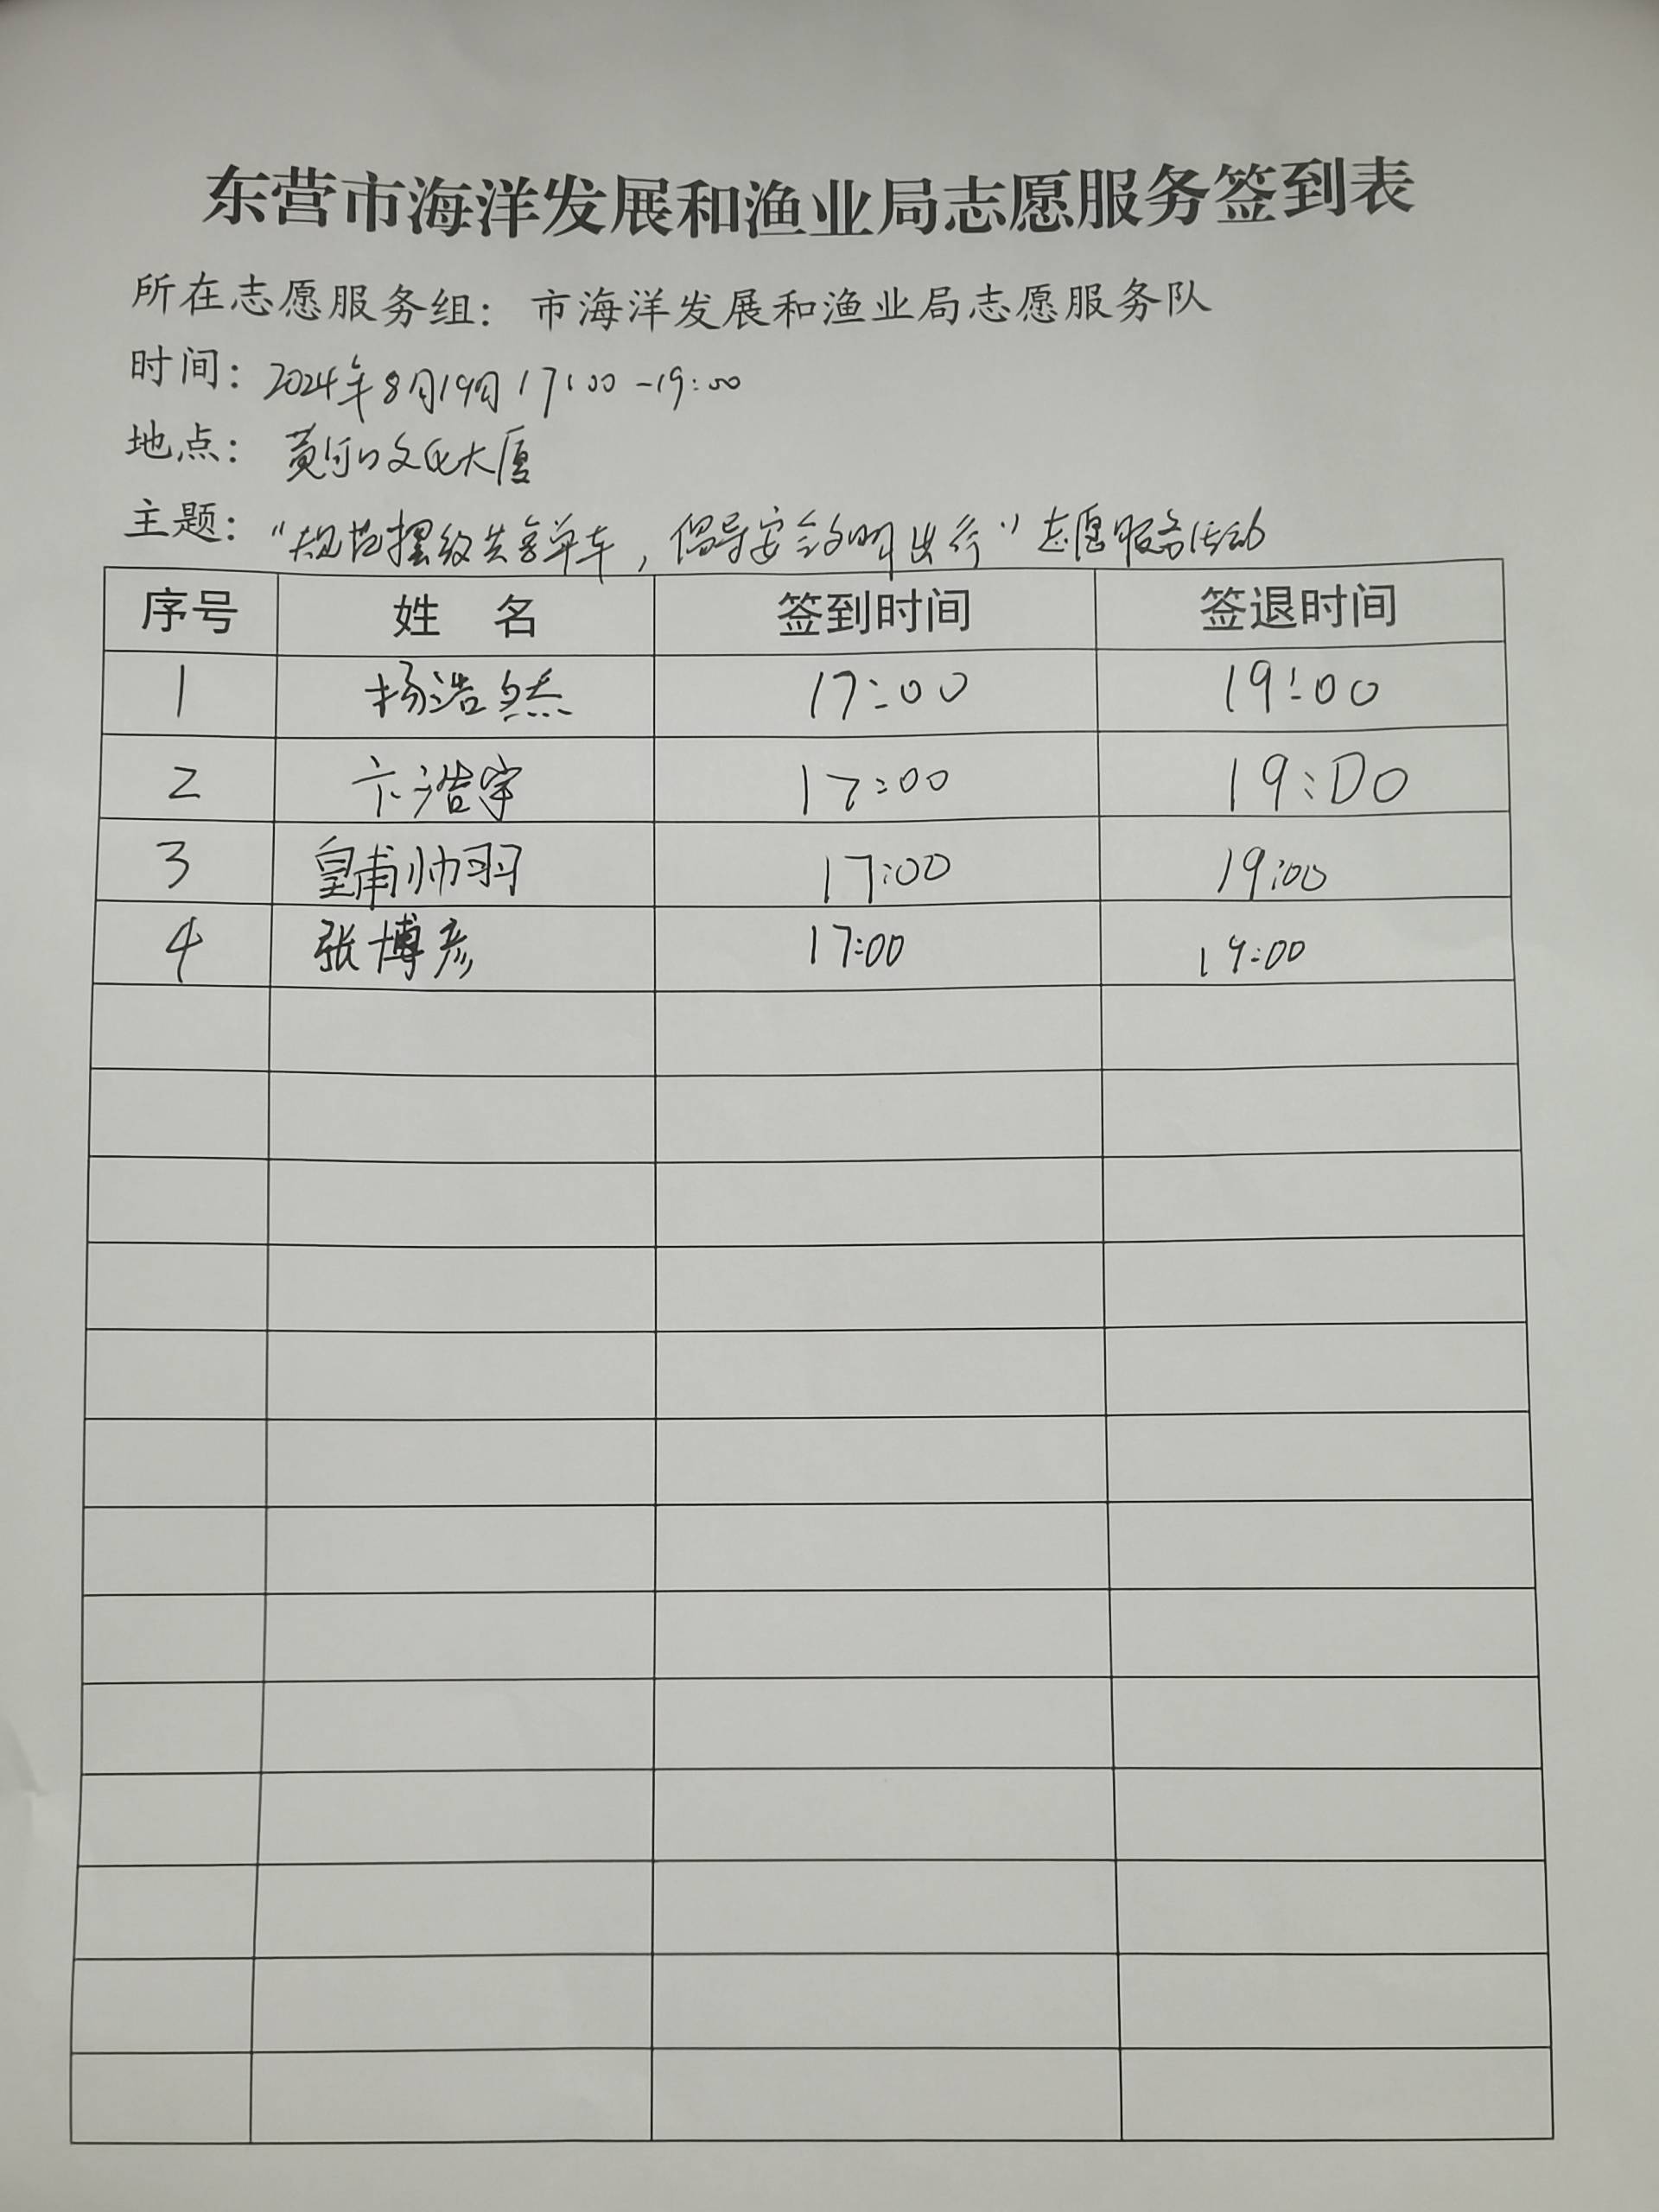 东营市海洋发展和渔业局志愿服务签到表
所在志愿服务组：市海洋发展和渔业局志愿服务队
时间：2024年8月19日 17:00-19:00
地点：黄河口文化大厦
主题：“规范摆放共享单车，倡导安全文明出行”志愿服务活动
序号 姓 名 签到时间 签退时间
1 杨浩然 17:00 19:00
2 卞浩宇 17:00 19:00
3 皇甫帅羽 17:00 19:00
4 张博彦 17:00 19:00